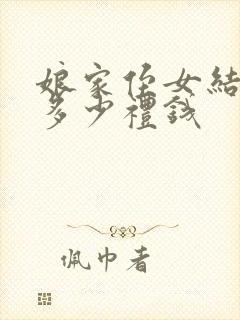 娘家侄女結
多少禮錢
佩巾者